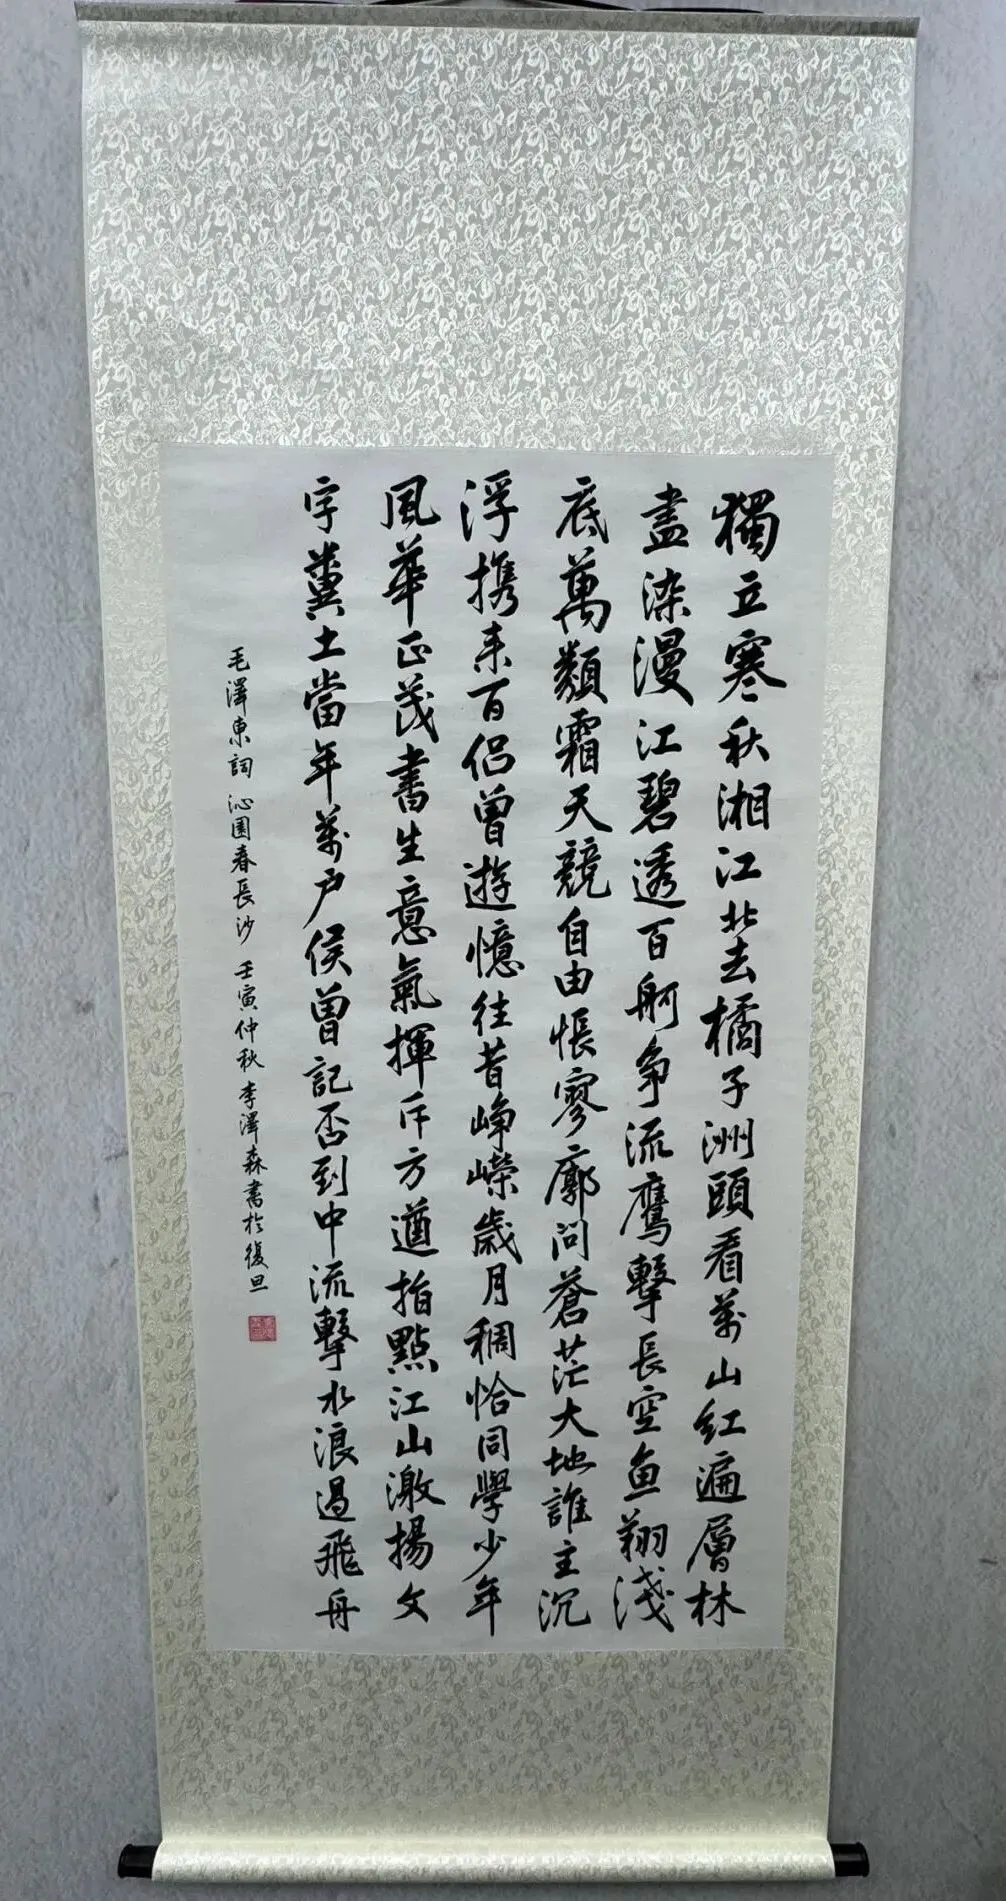 獨立寒秋湘江北去橘子洲頭看萬山紅遍層林
盡染漫江碧透百舸争流鷹擊長空魚翔淺
底萬類霜天競自由悵寥廓問蒼茫大地誰主沉
浮携来百侣曾遊憶往昔峥嶸歲月稠恰同學少年
風華正茂書生意氣揮斥方遒指點江山激揚文
字糞土當年萬户侯曾記否到中流擊水浪遏飛舟
毛澤東詞 沁園春長沙 壬寅仲秋李澤森書於復旦